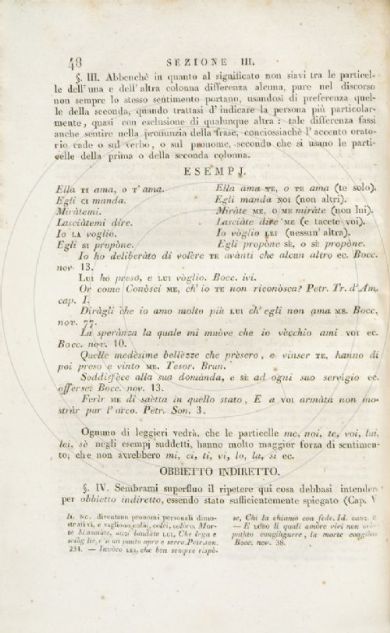 48 SEZIONE III.
§. III. Abbenchè in quanto al significato non siavi tra le particel-
le dell'una e dell'altra colonna differenza alcuna, pure nel discorso
non sempre lo stesso sentimento portano, usandosi di preferenza quel-
le della seconda, quando trattasi d'indicare la persona più particolar-
mente, quasi con esclusione di qualunque altra: tale differenza fassi
anche sentire nella pronunzia della frase, conciossiachè l'accento orato-
rio cade o sul verbo, o sul pronome, secondo che si usano le parti-
celle della prima o della seconda colonna.
ESEMPJ.
Ella TI ama, o T'ama. Ella ama TE, o TE ama (te solo).
Egli CI manda. Egli manda NOI (non altri).
Miràtemi. Miràte ME, o ME miràte (non lui).
Lasciàtemi dire. Lasciàte dire ME (e tacete voi).
Io LA voglio. Io vòglio LEI (nessun'altra).
Egli SI propòne. Egli propòne SÈ, o SÈ propòne.
Io ho deliberàto di volère TE avànti che alcun altro ec. Bocc.
nov. 13.
LUI ho preso, e LUI vòglio. Bocc. ivi.
Or come Conòsci ME, ch'io TE non riconòsca? Petr. Tr. d'Am.
cap. I.
Diràgli che io amo molto più LUI ch'egli non ama ME. Bocc.
nov. 77.
La sperànza la quale mi muòve che io vècchio ami VOI ec.
Bocc. nov. 10.
Quelle medèsime bellèzze che prèsero, e vinser TE, hanno di
poi preso e vinto ME. Tesor. Brun.
Soddisfece alla sua domànda, e SÈ ad ogni suo servigio ec.
offerse: Bocc. nov. 13.
Ferìr ME di saètta in quello stato, E a VOI armàta non mo-
stràr pur l'arco. Petr. Son. 3.
Ognuno di leggieri vedrà, che le particelle me, noi, te, voi, lui,
lei, sè negli esempj suddetti, hanno molto maggior forza di sentimen-
to, che non avrebbero mi, ci, ti, vi, lo, la, si ec.
OBBIETTO INDIRETTO.
§. IV. Sembrami superfluo il ripetere qui cosa debbasi intender
per obbietto indiretto, essendo stato sufficientemente spiegato (Cap. V
diventano pronomi personali dimo-
strativi, e vagliono colui, colei, coloro. Mor-
te biasimate, anzi laudate LUI, Che lega e
scioglie, e 'n un punto apre e serra. Petr. son.
234. — Invòco LEI, che ben sempre rispò-
se, Chi la chiamò con fede. Id. canz.
— E
Bocc. nov. 38.